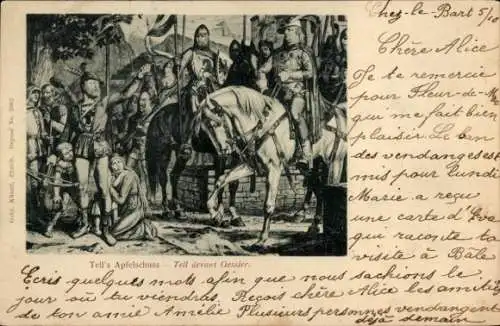 Chez-le-Bart 5/
Chère Alice
Je te remercie
pour Fleur-de-
qui me fait bien
plaisir. Le ban
des vendanges est
mis pour lundi
Marie a reçu
une carte d'
qui raconte ta
visite à Bâle
Tell's Apfelschuss - Tell devant Gessler.
Ecris quelques mots afin que nous sachions le
jour où tu viendras. Reçois chère Alice les amitiés
de ton amie Amélie Plusieurs personnes vendangent
déjà demain